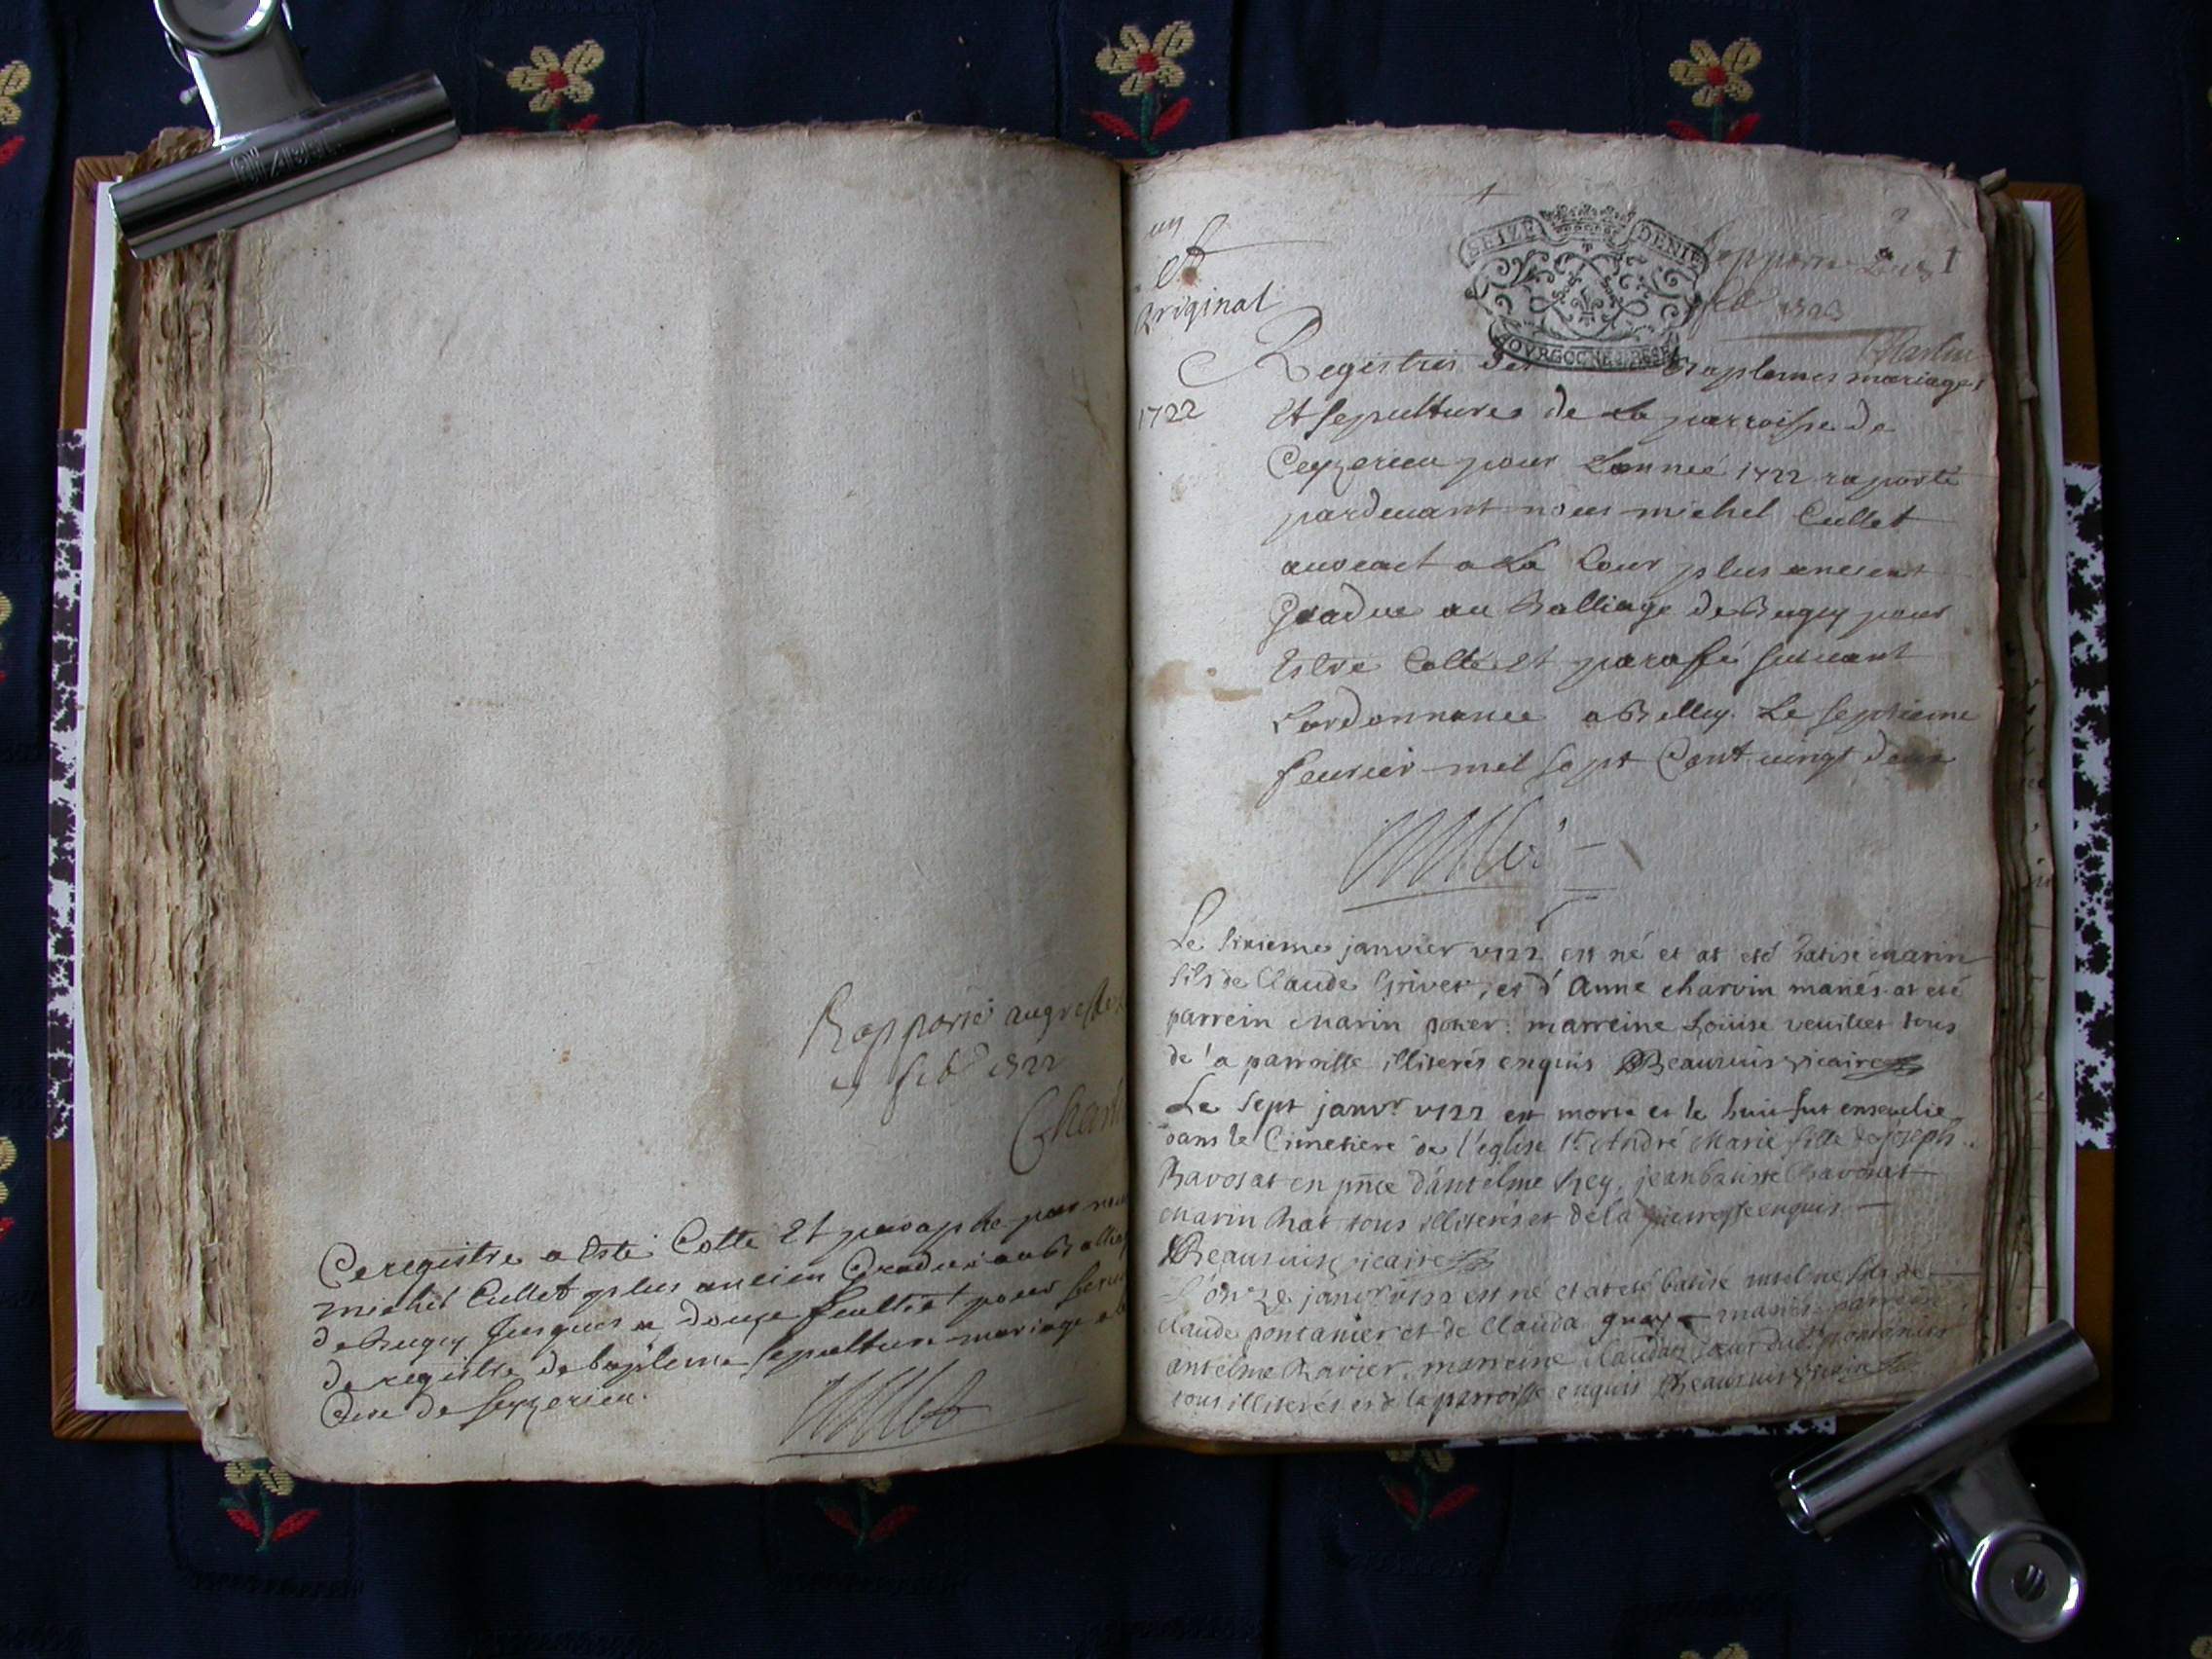 Rapporté au greffe
feb. 1722
Ce registre a esté Cotté Et paraphe par nous
michel Cullet plus ancien Gradué au Balliage
de Bugey Jusques a douze feulliet pour servir
de registre de bapteme sepulture mariage
Cure de Seyzerieu.
Cullet
un
Original
SEIZE DENIERS
BOVRGOGNE BRESSE
1
Registres des Baptemes mariages
1722
Et sepultures de La parroisse de
Ceyzerieu pour L'année 1722 raporté
pardevant nous michel Cullet
auocact a La Cour plus ancient
Gradue au Balliage de Bugey pour
Estre Cotté Et paraffé suiuant
L'ordonnance a Belley. Le septieme
feurier mil sept Cent uingt deux
Cullet
Le sixieme janvier 1722 est né et at eté batisé marin
fils de Claude Grivet, et d'Anne charvin mariés at eté
parrein Marin marreine Loüise veuillet tous
de la parroisse illiterés enquis Beauvuis vicaire
Le Sept janvr 1722 est morte et le huit fut ensevelie
dans le Cimetiere de l'église St. André Marie fille de joseph
Ravosat en pnce d'antelme Rey, jean batiste Ravosat
Marin tous illiterés et de la enquis
Beauvuis vicaire
L'onze janvr 1722 est né et at eté batisé antelme fils de
Claude pontanier et de Clauda mariés parrein
antelme Ravier, marreine Claudaz sœur dud. pontanier
tous illiterés et de la parroisse enquis Beauvuis vicaire